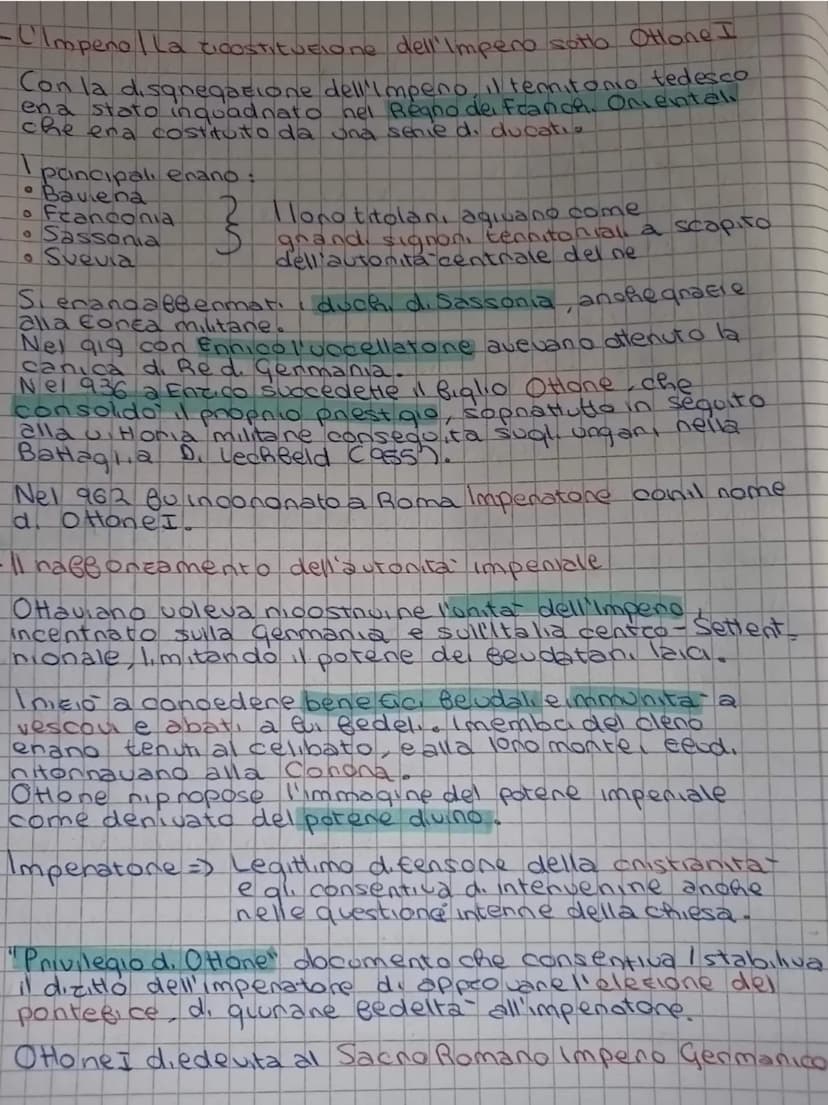 - L'Impero | La ricostituzione dell'Impero sotto Ottone I
Con la disgregazione dell'Impero, il territorio tedesco
era stato inquadrato nel Regno dei Franchi Orientali
che era costituto da una serie di ducati.
I principali erano:
• Baviera
• Franconia
• Sassonia
• Svevia
I loro titolari agivano come
grandi signori territoriali a scapito
dell'autorità centrale del re
Si erano affermati i duchi di Sassonia, anche grazie
alla forza militare.
Nel 919 con Enrico l'uccellatore avevano ottenuto la
carica di Re di Germania.
Nel 936 a Enrico succedette il figlio Ottone, che
consolidò il proprio prestigio, sopratutto in seguito
alla vittoria militare conseguita sugli ungari nella
Battaglia Di Lechfeld (955).
Nel 962 fu incoronato a Roma Imperatore con il nome
di Ottone I.
- Il rafforzamento dell'autorità imperiale
Ottaviano voleva ricostruire l'unità dell'Impero,
incentrato sulla Germania e sull'Italia centro-Settent-
rionale, limitando il potere dei feudatari laici.
Iniziò a concedere benefici feudali e immunità a
vescovi e abati a lui fedeli. I membri del clero
erano tenuti al celibato, e alla loro morte i feudi
ritornavano alla Corona.
Ottone ripropose l'immagine del potere imperiale
come derivato del potere divino.
Imperatore => Legittimo difensore della cristianità
e gli consentiva di intervenire anche
nelle questione interne della chiesa.
"Privilegio di Ottone" documento che consentiva / stabiliva
il diritto dell'imperatore di approvare l'elezione del
pontefice, di giurare fedeltà all'imperatore.
Ottone I diede vita al Sacro Romano Impero Germanico